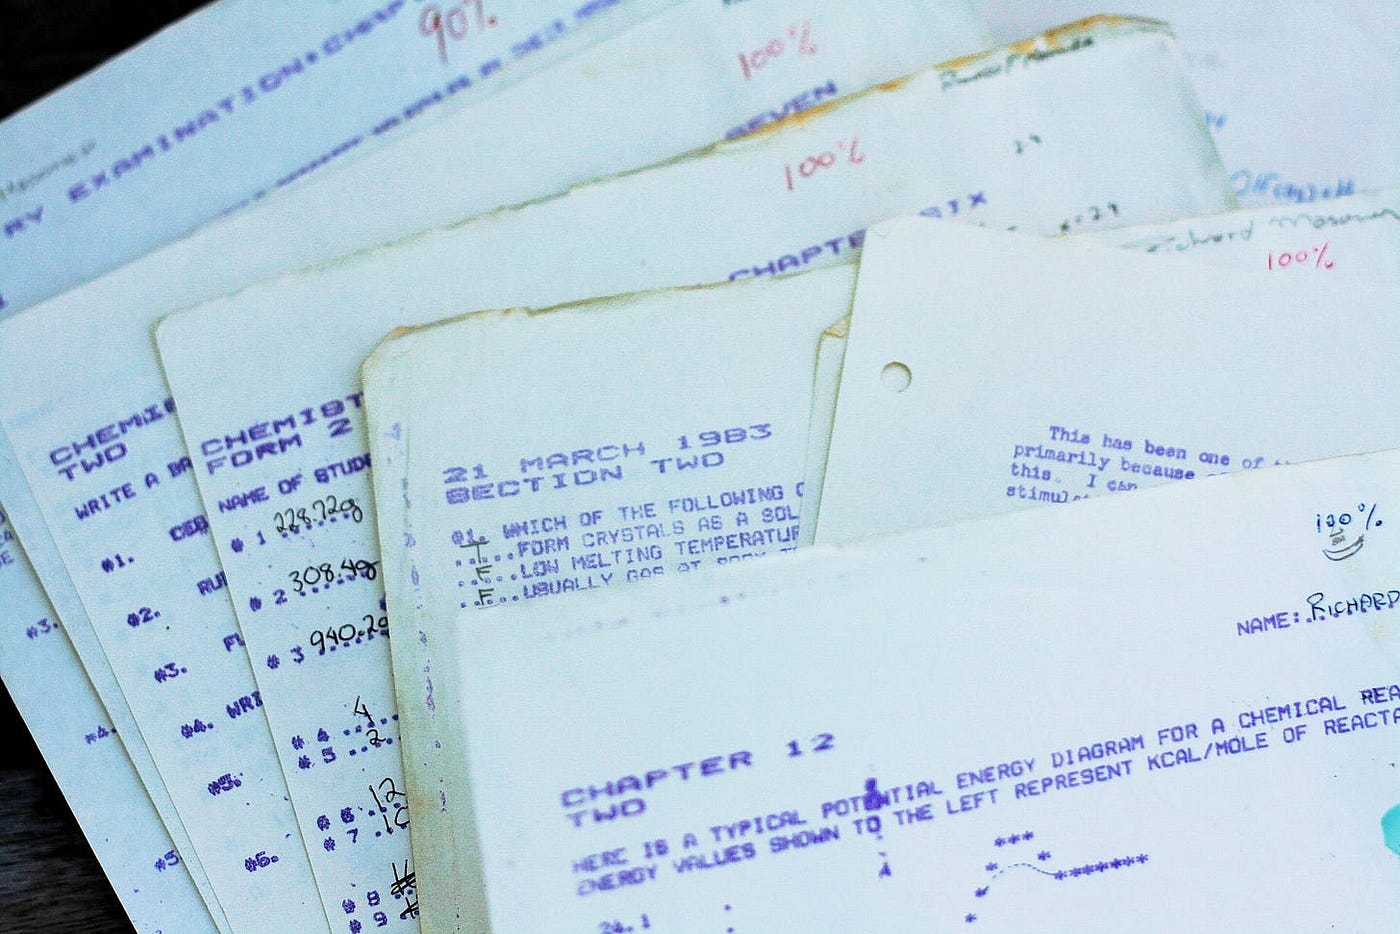 90%
RY EXAMINATION
100%
SEVEN
100%
CHAPTER SIX
x=29
Richard
100%
CHEMI
TWO
WRITE A BA
#1.
#2.
RU
#3.
FL
#4. WRI
#5.
#6.
#3.
#4.
#5
CHEMIST
FORM 2
NAME OF STUDE
# 1 228.72g
# 2 308.4g
# 3 940.2g
# 4 4
# 5 2
# 6 12
# 7
# 8
# 9
21 MARCH 1983
SECTION TWO
#1. WHICH OF THE FOLLOWING
T...FORM CRYSTALS AS A SOL
F...LOW MELTING TEMPERATUR
F...USUALLY GAS AT ROOM
This has been one of
primarily because
this. I can
stimul
100%
NAME:.RICHARD
CHAPTER 12
TWO
HERE IS A TYPICAL POTENTIAL ENERGY DIAGRAM FOR A CHEMICAL REA
ENERGY VALUES SHOWN TO THE LEFT REPRESENT KCAL/MOLE OF REACTA
24.1